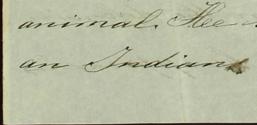 animal. Hee
an Indian